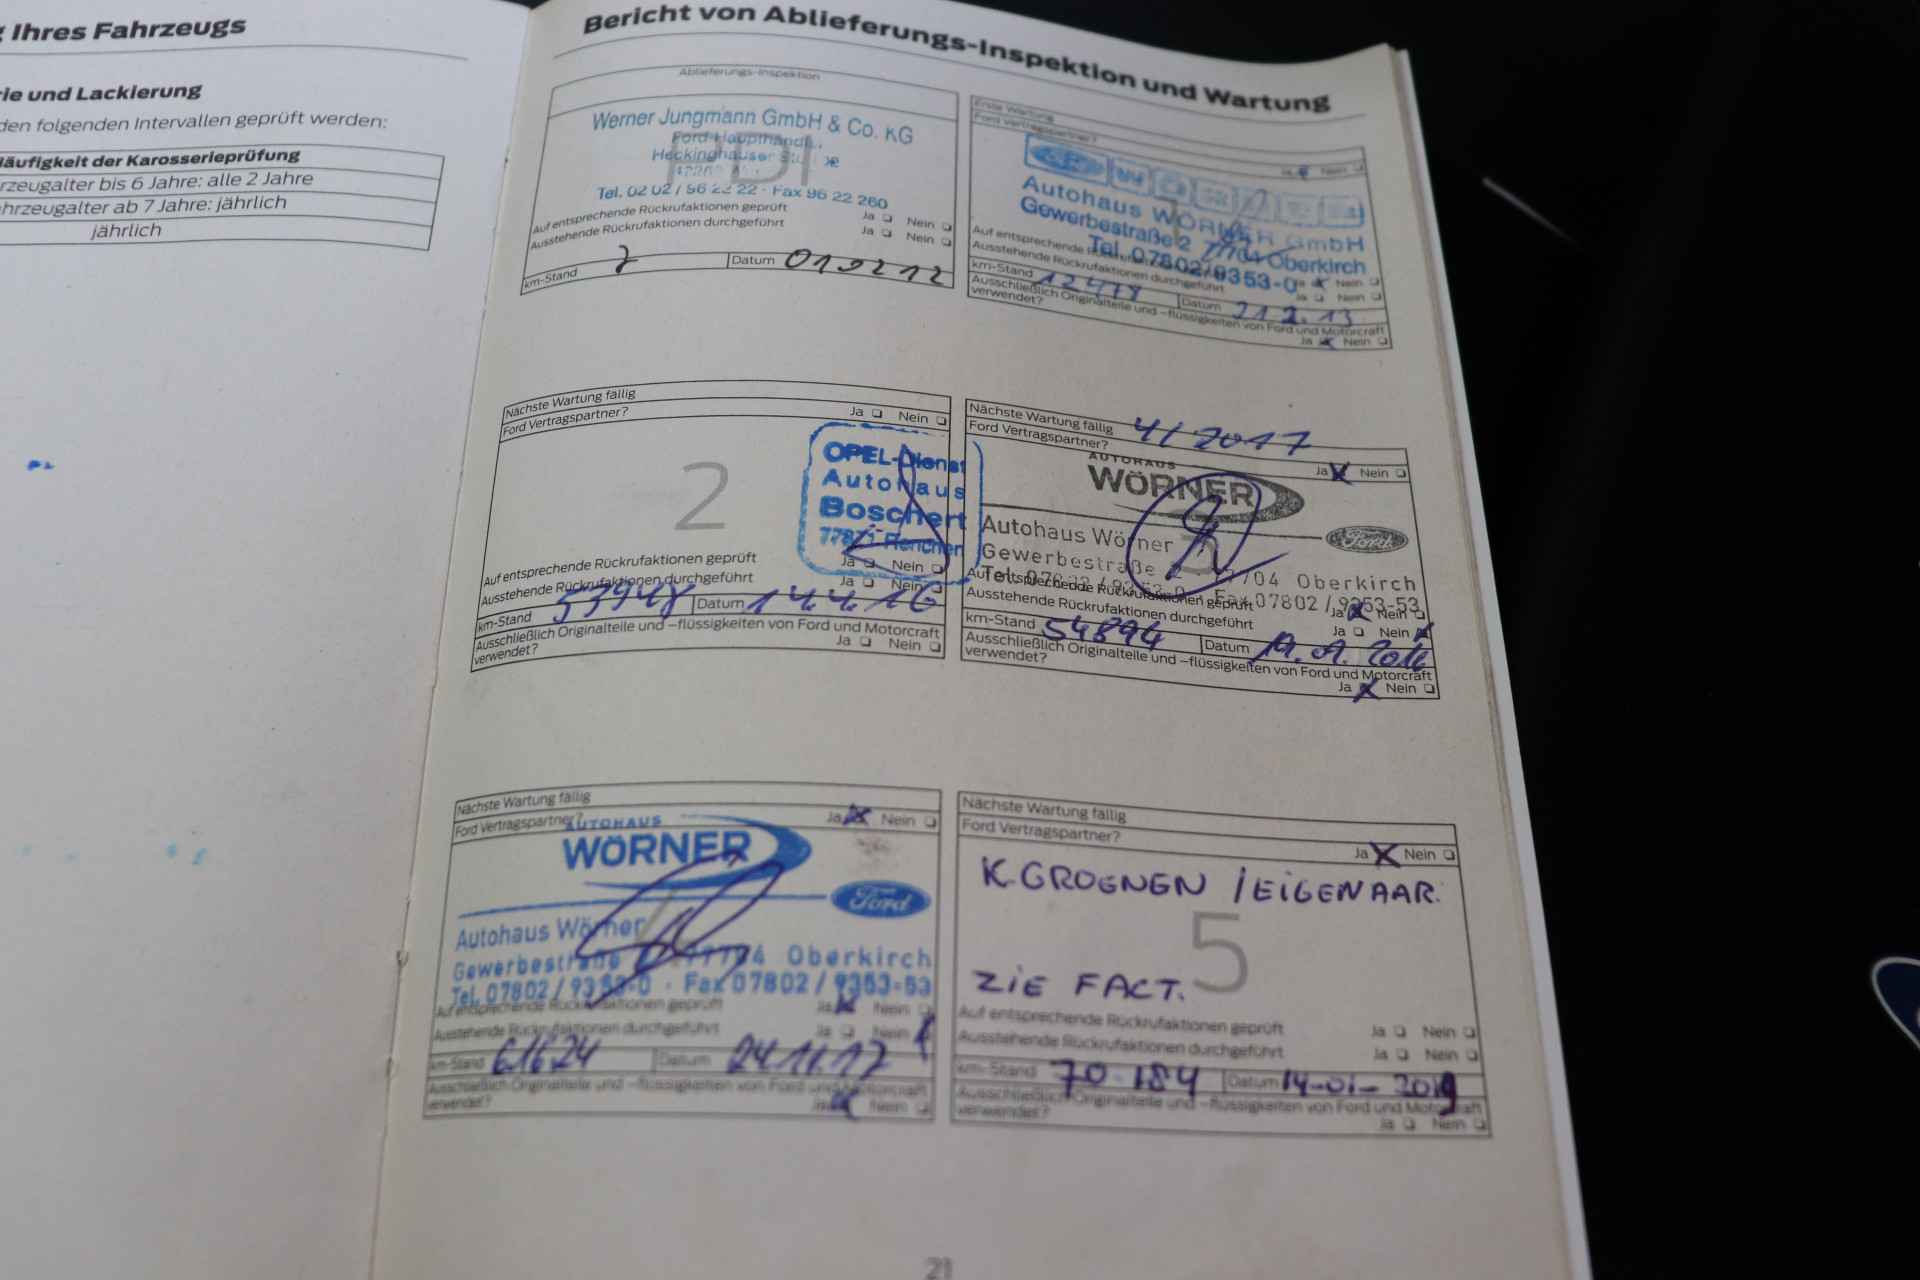 Ihres Fahrzeugs
und Lackierung
den folgenden Intervallen geprüft werden:
der Karosserieprüfung
bis 6 Jahre: alle 2 Jahre
ab 7 Jahre: jährlich
jährlich
Bericht von Ablieferungs-Inspektion und Wartung
Ablieferungs-Inspektion
Werner Jungmann GmbH & Co. KG
Tel. 02 02 / 96 22 22 · Fax 96 22 260
Auf entsprechende Rückrufaktionen geprüft Ja Nein
Ausstehende Rückrufaktionen durchgeführt Ja Nein
km-Stand 7 Datum 01 02 12
Erste Wartung
Ford Vertragspartner?
Ja Nein
Autohaus WÖRNER GmbH
Gewerbestraße 2 77704 Oberkirch
Tel. 07802/9353-0
Auf entsprechende
Ausstehende durchgeführt
Ja Nein
Ja Nein
km-Stand 12478 Datum 21.2.13
Ausschließlich Originalteile und –flüssigkeiten von Ford und Motorcraft
verwendet? Ja Nein
Nächste Wartung fällig
Ford Vertragspartner? Ja Nein
2
OPEL-Dienst
Autohaus
Boschert
77871 Renchen
Auf entsprechende Rückrufaktionen geprüft Ja Nein
Ausstehende Rückrufaktionen durchgeführt Ja Nein
km-Stand 53948 Datum 14.4.16
Ausschließlich Originalteile und –flüssigkeiten von Ford und Motorcraft
verwendet? Ja Nein
Nächste Wartung fällig 4/2017
Ford Vertragspartner? Ja Nein
AUTOHAUS
WÖRNER
Ford
Autohaus Wörner
Gewerbestraße 2 · 77704 Oberkirch
Fax 07802 / 9353-53
Auf entsprechende Rückrufaktionen geprüft Ja Nein
Ausstehende Rückrufaktionen durchgeführt Ja Nein
km-Stand 54894 Datum 2016
Ausschließlich Originalteile und –flüssigkeiten von Ford und Motorcraft
verwendet? Ja Nein
Nächste Wartung fällig
Ford Vertragspartner? Ja Nein
AUTOHAUS
WÖRNER
Ford
Autohaus Wörner
Gewerbestraße 77704 Oberkirch
Tel. 07802 / 9353-0 · Fax 07802 / 9353-53
Auf entsprechende Rückrufaktionen geprüft Ja Nein
Ausstehende Rückrufaktionen durchgeführt Ja Nein
km-Stand 61624 Datum 24.11.17
Ausschließlich Originalteile und –flüssigkeiten von Ford und Motorcraft
verwendet? Ja Nein
Nächste Wartung fällig
Ford Vertragspartner? Ja Nein
K.GROENEN / EIGENAAR.
5
ZIE FACT.
Auf entsprechende Rückrufaktionen geprüft Ja Nein
Ausstehende Rückrufaktionen durchgeführt Ja Nein
km-Stand 70.184 Datum 14-01-2019
Ausschließlich Originalteile und –flüssigkeiten von Ford und Motorcraft
verwendet? Ja Nein
21